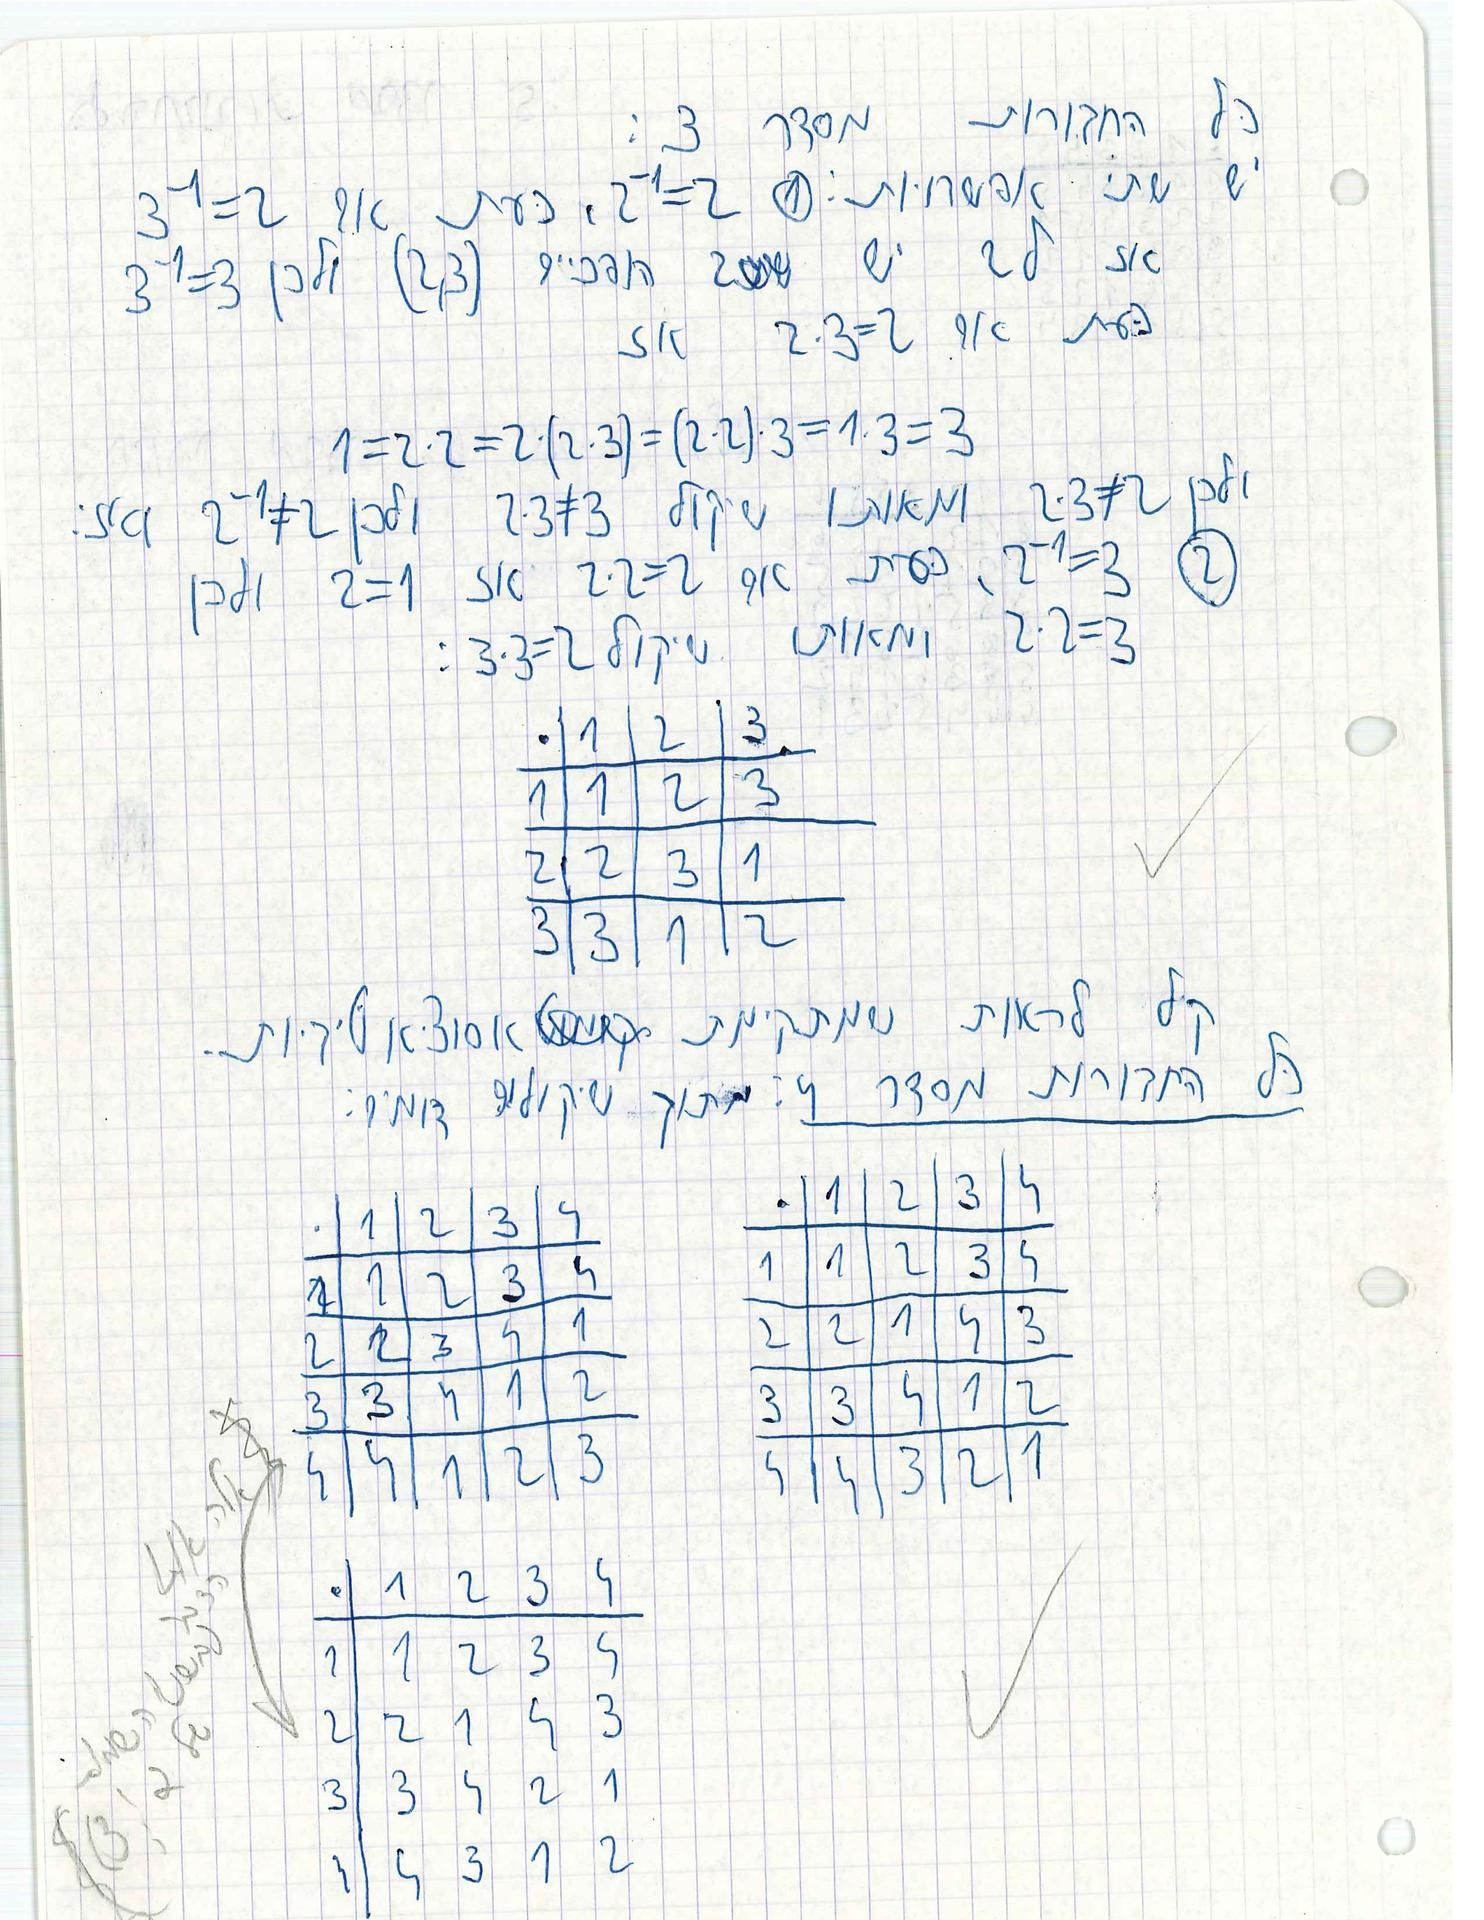 כל החבורות מסדר 3:
יש שתי אפשרויות: ① 2⁻¹=2, כעת אם 3⁻¹=2
אז ל2 יש 2 הופכיים (2,3) ולכן 3⁻¹=3
כעת אם 2·3=2 אז
1=2·2=2·(2·3)=(2·2)·3=1·3=3
ולכן 2·3≠2 ומאותו שיקול 2·3≠3 ולכן 2⁻¹≠2 ואז:
② 2⁻¹=3, כעת אם 2·2=2 אז 2=1 ולכן
2·2=3 ומאותו שיקול 3·3=2:
· 1 2 3
1 1 2 3
2 2 3 1
3 3 1 2
קל לראות שמתקימת אסוציאטיביות.
כל החבורות מסדר 4: מתוך שיקולים דומים:
· 1 2 3 4
1 1 2 3 4
2 2 1 4 3
3 3 4 1 2
4 4 3 2 1
· 1 2 3 4
1 1 2 3 4
2 2 3 4 1
3 3 4 1 2
4 4 1 2 3
· 1 2 3 4
1 1 2 3 4
2 2 1 4 3
3 3 4 2 1
4 4 3 1 2